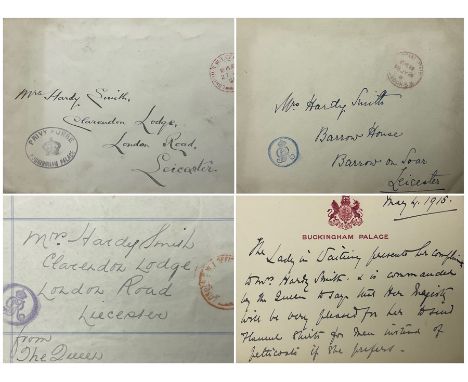 Mrs Hardy Smith,
Clarendon Lodge,
London Road,
Leicester.
PRIVY PURSE
BUCKINGHAM PALACE
Mrs Hardy Smith
Barrow House
Barrow on Soar
Leicester
Mrs Hardy Smith
Clarendon Lodge,
London Road
Leicester
from
The Queen
May 4. 1915.
BUCKINGHAM PALACE
The Lady in Waiting presents her compts
to Mrs Hardy Smith & is commanded
by the Queen to say that Her Majesty
will be very pleased for her to send
flannel shirts for men instead of
petticoats if she prefers.